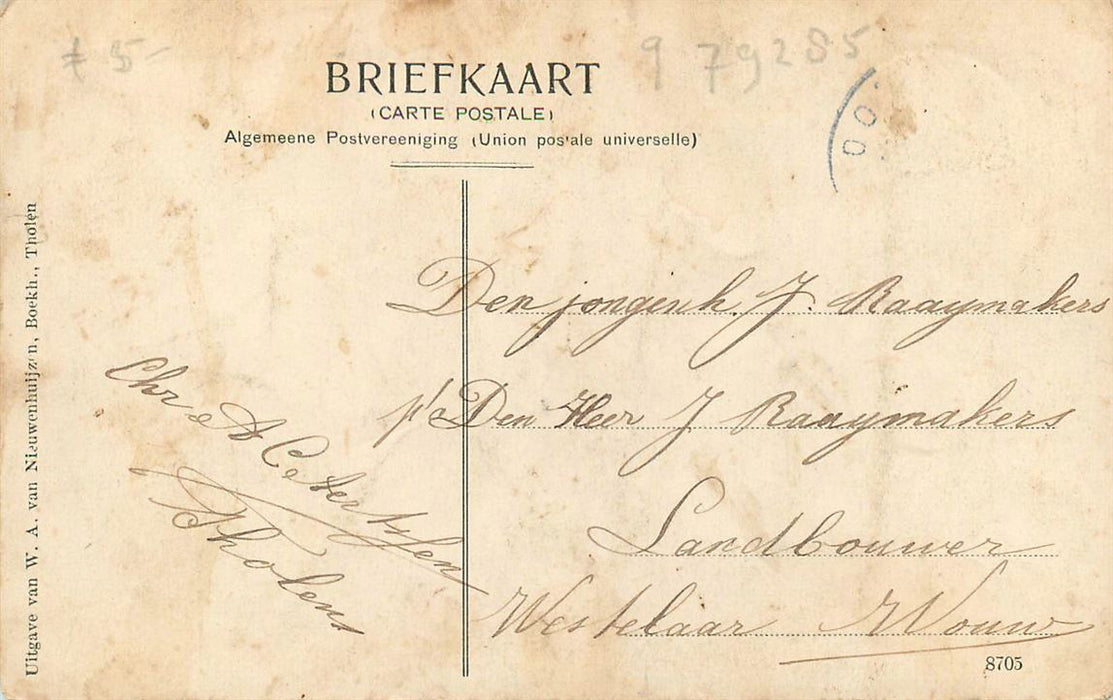 £ 5-
9 79285
BRIEFKAART
(CARTE POSTALE)
Algemeene Postvereeniging (Union postale universelle)
DOO
Uitgave van W. A. van Nieuwenhuijzen, Boekh., Tholen
Den jongenh. J. Raaymakers
p/ Den Heer J Raaymakers
Landbouwer
Westelaar Wouw
Chr
Tholen
8705